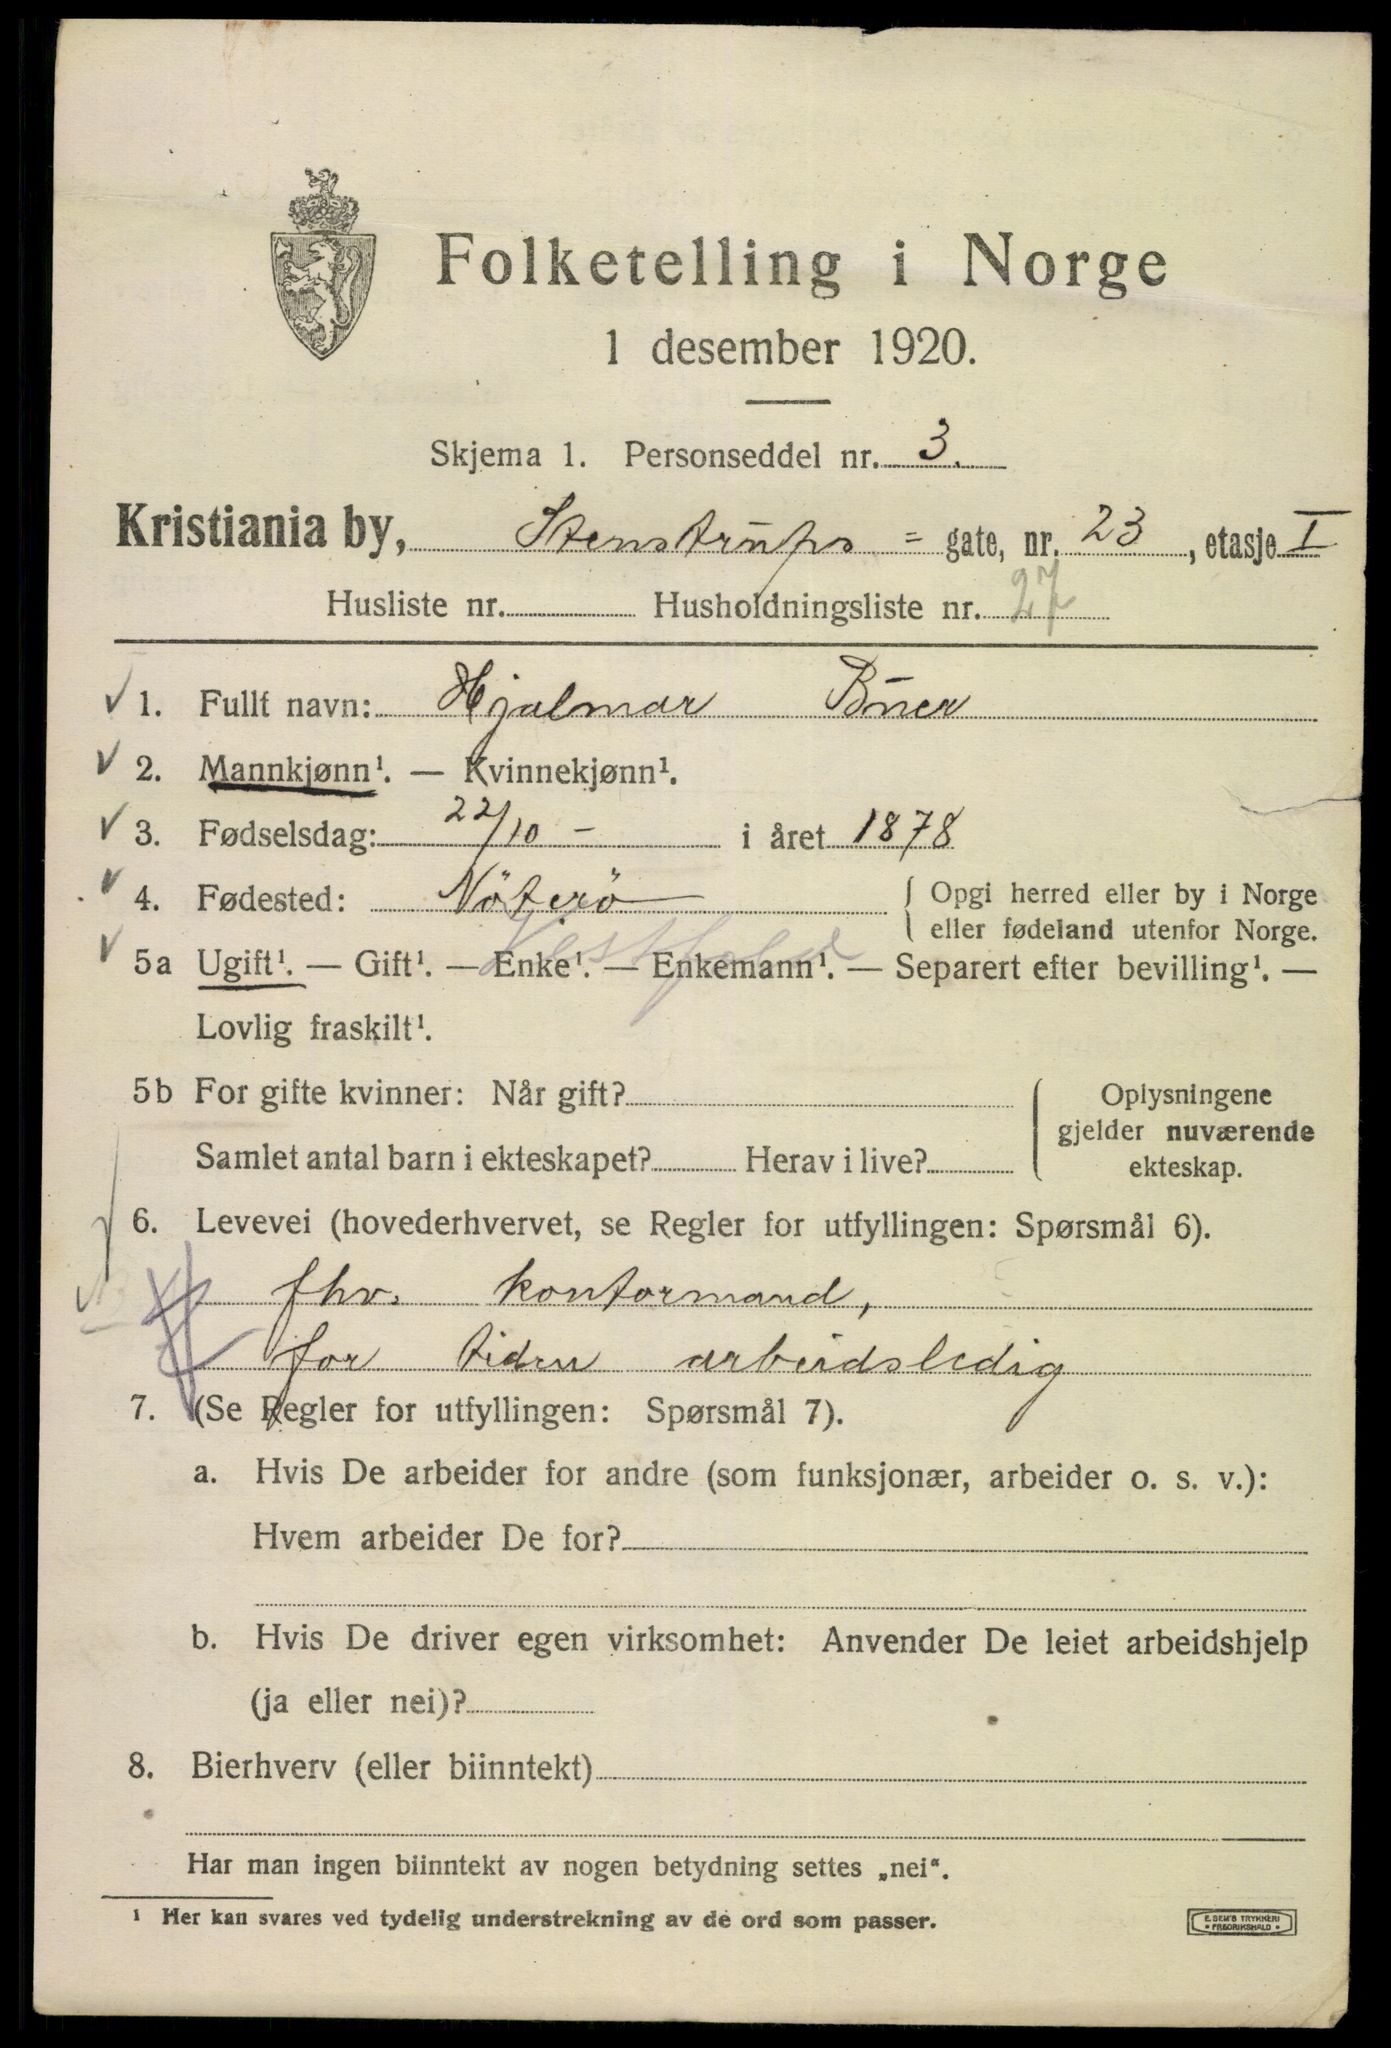 Folketelling i Norge
1 desember 1920.
Skjema 1. Personseddel nr. 3.
Kristiania by, Stenstrups = gate, nr. 23, etasje I
Husliste nr. Husholdningsliste nr. 27
√ 1. Fullt navn: Hjalmar Buer
√ 2. Mannkjønn¹. — Kvinnekjønn¹.
√ 3. Fødselsdag: 22/10 - i året 1878
√ 4. Fødested: Nöterö Opgi herred eller by i Norge
eller fødeland utenfor Norge.
Vestfold
√ 5a Ugift¹. — Gift¹. — Enke¹. — Enkemann¹. — Separert efter bevilling¹. —
Lovlig fraskilt¹.
5b For gifte kvinner: Når gift? Oplysningene
gjelder nuværende
Samlet antal barn i ekteskapet? Herav i live? ekteskap.
6. Levevei (hovederhvervet, se Regler for utfyllingen: Spørsmål 6).
fhv. kontormand,
for tiden arbeidsledig
7. (Se Regler for utfyllingen: Spørsmål 7).
a. Hvis De arbeider for andre (som funksjonær, arbeider o. s. v.):
Hvem arbeider De for?
b. Hvis De driver egen virksomhet: Anvender De leiet arbeidshjelp
(ja eller nei)?
8. Bierhverv (eller biinntekt)
Har man ingen biinntekt av nogen betydning settes „nei“.
¹ Her kan svares ved tydelig understrekning av de ord som passer.
E. SEM'S TRYKKERI
• FREDRIKSHALD •